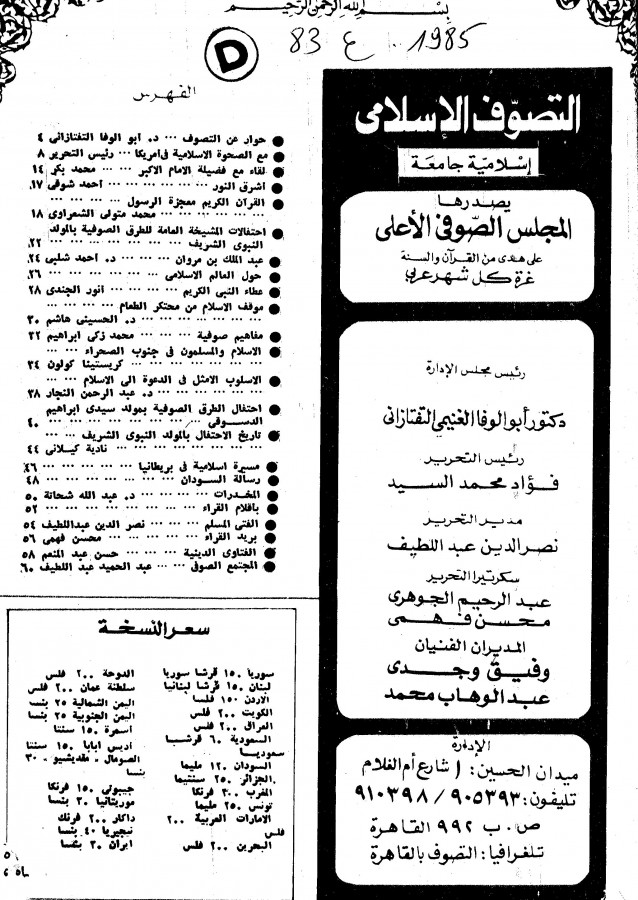 بسم الله الرحمن الرحيم
D 83 ع 1985
التصوّف الإسلامى
إسلامية جامعة
يصدرها
المجلس الصّوفى الأعلى
على هدى من القرآن والسنة
غرة كل شهر عربي
رئيس مجلس الإدارة
دكتور أبو الوفا الغنيمى التفتازانى
رئيس التحرير
فؤاد محمد السيد
مدير التحرير
نصر الدين عبد اللطيف
سكرتيرا التحرير
عبد الرحيم الجوهرى
محسن فهمى
المديران الفنيان
وفيق وجدى
عبد الوهاب محمد
الإدارة
ميدان الحسين: ١ شارع أم الغلام
تليفون: ٩٠٥٣٩٣ / ٩١٠٣٩٨
ص. ب ٩٩٢ القاهرة
تلغرافيا: التصوف بالقاهرة
الفهرس
● حوار عن التصوف ... د. ابو الوفا التفتازانى ٤
● مع الصحوة الاسلامية فى امريكا ... رئيس التحرير ٨
● لقاء مع فضيلة الامام الاكبر ... محمد بكر ١٤
● اشرق النور ... ... ... ... احمد شوقى ١٧
● القرآن الكريم معجزة الرسول ... ... ...
... ... ... ... محمد متولى الشعراوى ١٨
● احتفالات المشيخة العامة للطرق الصوفية بالمولد
النبوى الشريف ... ... ... ... ... ٢٢
● عبد الملك بن مروان ... ... د. احمد شلبى ٢٤
● حول العالم الاسلامى ... ... ... ... ٢٦
● عطاء النبى الكريم ... ... ... انور الجندى ٢٨
● موقف الاسلام من محتكر الطعام ... ... ...
... ... ... ... د. الحسينى هاشم ٣٠
● مفاهيم صوفية ... ... محمد زكى ابراهيم ٣٢
● الاسلام والمسلمون فى جنوب الصحراء ... ...
... ... ... ... كريستينا كولون ٣٤
● الاسلوب الامثل فى الدعوة الى الاسلام ... ...
... ... ... د. عبد الرحمن النجار ٣٨
● احتفال الطرق الصوفية بمولد سيدى ابراهيم
الدسوقى ... ... ... ... ... ٤٠
● تاريخ الاحتفال بالمولد النبوى الشريف ... ...
... ... ... ... نادية كيلانى ٤٤
● مسيرة اسلامية فى بريطانيا ... ... ... ٤٦
● رسالة السودان ... ... ... ... ... ٤٨
● المخدرات ... ... ... د. عبد الله شحاتة ٥٠
● باقلام القراء ... ... ... ... ... ٥٢
● الفتى المسلم ... ... نصر الدين عبد اللطيف ٥٤
● بريد القراء ... ... ... محسن فهمى ٥٦
● الفتاوى الدينية ... ... حسن عبد المنعم ٥٨
● المجتمع الصوفى ... عبد الحميد عبد اللطيف ٦٠
سعر النسخة
سوريا ١٥٠ قرشا سوريا
لبنان ١٥٠ قرشا لبنانيا
الاردن ١٥٠ فلسا
الكويت ٢٠٠ فلس
العراق ٢٠٠ فلس
السعودية ٦٠ قرشا
سعوديا
السودان ١٢٠ مليما
الجزائر ٢٥٠ سنتيما
المغرب ٣٠٠ فرنكا
تونس ٢٥٠ مليما
الامارات العربية ٢٠٠
فلس
البحرين ٢٠٠ فلس
الدوحة ٢٠٠ فلس
سلطنة عمان ٢٠٠ فلس
اليمن الشمالية ٢٥ بنسا
اليمن الجنوبية ٢٥ بنسا
اسمرة ١٥٠ سنتا
اديس ابابا ١٥٠ سنتا
الصومال - مقديشيو ٣٠
بنسا
جيبوتى ١٥٠ فرنكا
موريتانيا ٣٠ بنسا
داكار ٢٠٠ فرنك
نيجيريا ٤٠ بنسا
ايران ٣٠ بنسا